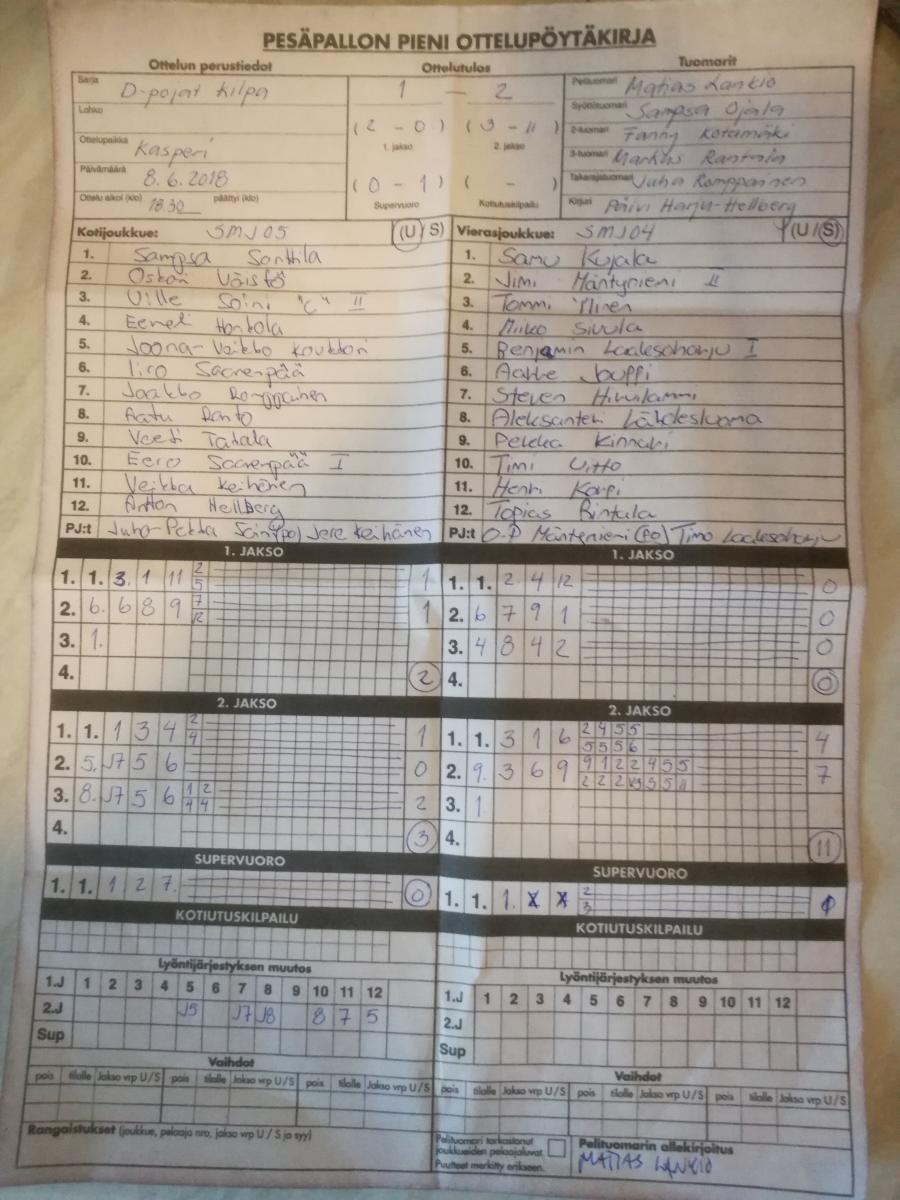 PESÄPALLON PIENI OTTELUPÖYTÄKIRJA
Ottelun perustiedot
Sarja D-pojat kilpa
Lohko
Ottelupaikka Kasperi
Päivämäärä 8.6.2018
Ottelu alkoi (klo) 18.30 päättyi (klo)
Ottelutulos
1 — 2
(2 - 0) (3 - 11)
1. jakso 2. jakso
(0 - 1) ( - )
Supervuoro Kotiutuskilpailu
Tuomarit
Pelituomari Matias Lankio
Syöttötuomari Sampsa Ojala
2-tuomari Fanny Kotamäki
3-tuomari Markus Rantala
Takarajatuomari Juha Romppainen
Kirjuri Päivi Harju-Hellberg
Kotijoukkue: SMJ05 (U/S)
1. Sampsa Santtila
2. Oskari Väistö
3. Ville Soini "C" II
4. Eemel Hantola
5. Joona-Veikko
6. Iiro Saarenpää
7. Jaakko Romppainen
8. Aatu Ranto
9. Veeti Takala
10. Eero Saarenpää I
11. Veikka Keihänen
12. Anton Hellberg
PJ:t Juha-Pekka Jere Keihänen
Vierasjoukkue: SMJ04 (U/S)
1. Samu Kujala
2. Jimi Mäntynieni II
3. Tommi Ylinen
4. Miiko Sivula
5. Benjamin Laaksoharju I
6. Aatte Jouppi
7. Steven Hirvilammi
8. Aleksanteri Lähdesluoma
9. Pekka Kinnari
10. Timi Uitto
11. Henri Korpi
12. Topias Rintala
PJ:t O-P Mäntynieni (PO) Timo Laaksoharju
1. JAKSO
1. 1. 3. 1 11 2 5 1
2. 6. 6 8 9 7 12 1
3. 1.
4. 2
1. JAKSO
1. 1. 2. 4 12 0
2. 6 7 9 1 0
3. 4 8 4 2 0
4. 0
2. JAKSO
1. 1. 1 3 4 2 4 1
2. 5. J7 5 6 0
3. 8. J7 5 6 1 2 4 4 2
4. 3
2. JAKSO
1. 1. 3 1 6 2 4 5 5 5 5 5 6 4
2. 9. 3 6 9 9 1 2 2 4 5 5 2 2 2 5 5 11 7
3. 1
4. 11
SUPERVUORO
1. 1. 1 2 7. 0
SUPERVUORO
1. 1. 1. X X 2 3
KOTIUTUSKILPAILU
KOTIUTUSKILPAILU
Lyöntijärjestyksen muutos
1.J 1 2 3 4 5 6 7 8 9 10 11 12
2.J J5 J7 J8 8 7 5
Sup
Lyöntijärjestyksen muutos
1.J 1 2 3 4 5 6 7 8 9 10 11 12
2.J
Sup
Vaihdot
pois tilalle Jakso vrp U/S pois tilalle Jakso vrp U/S pois tilalle Jakso vrp U/S
Vaihdot
pois tilalle Jakso vrp U/S pois tilalle Jakso vrp U/S pois tilalle Jakso vrp U/S
Rangaistukset (joukkue, pelaaja nro, jakso vrp U / S ja syy)
Pelituomari tarkastanut
joukkueiden pelaajaluvat.
Puutteet merkitty erikseen.
Pelituomarin allekirjoitus
MATIAS LANKIO